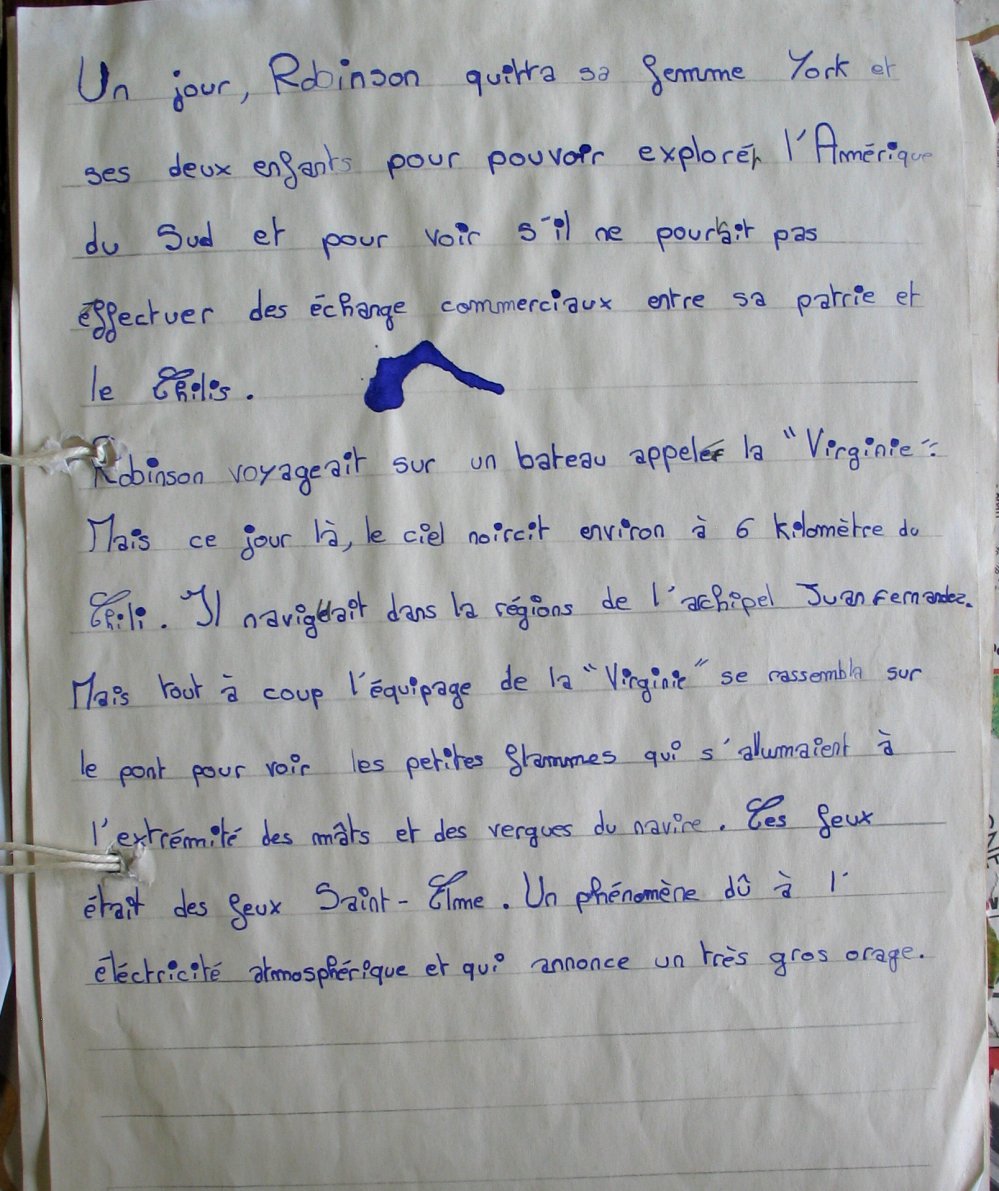 Un jour, Robinson quitta sa femme York et
ses deux enfants pour pouvoir explorér l'Amérique
du Sud et pour voir s'il ne pourrait pas
éffectuer des échange commerciaux entre sa patrie et
le Chilis.
Robinson voyageait sur un bateau appelée la "Virginie".
Mais ce jour là, le ciel noircit environ à 6 Kilomètre du
Chili. Il naviguait dans la régions de l'achipel Juan Fernandez.
Mais tout à coup l'équipage de la "Virginie" se rassembla sur
le pont pour voir les petites flammes qui s'alumaient à
l'extrémité des mâts et des vergues du navire. Ces feux
était des feux Saint-Elme. Un phénomène dû à l'
éléctricité atmosphérique et qui annonce un très gros orage.